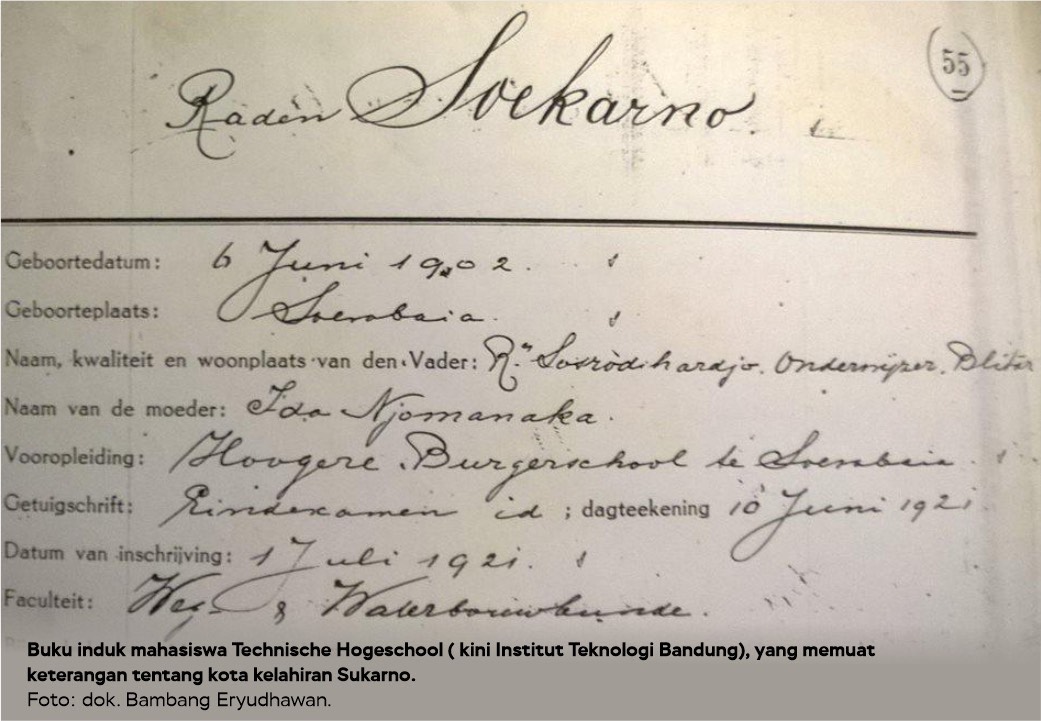 55
Raden Soekarno
Geboortedatum: 6 Juni 1902.
Geboorteplaats: Soerabaia.
Naam, kwaliteit en woonplaats van den Vader: Rn Sosrodihardjo. Onderwijzer. Blitar
Naam van de moeder: Ida Njomanaka.
Vooropleiding: Hoogere Burgerschool te Soerabaia
Getuigschrift: Eindexamen id ; dagteekening 10 Juni 1921.
Datum van inschrijving: 1 Juli 1921.
Faculteit: Weg- & Waterbouwkunde.
Buku induk mahasiswa Technische Hogeschool ( kini Institut Teknologi Bandung), yang memuat
keterangan tentang kota kelahiran Sukarno.
Foto: dok. Bambang Eryudhawan.